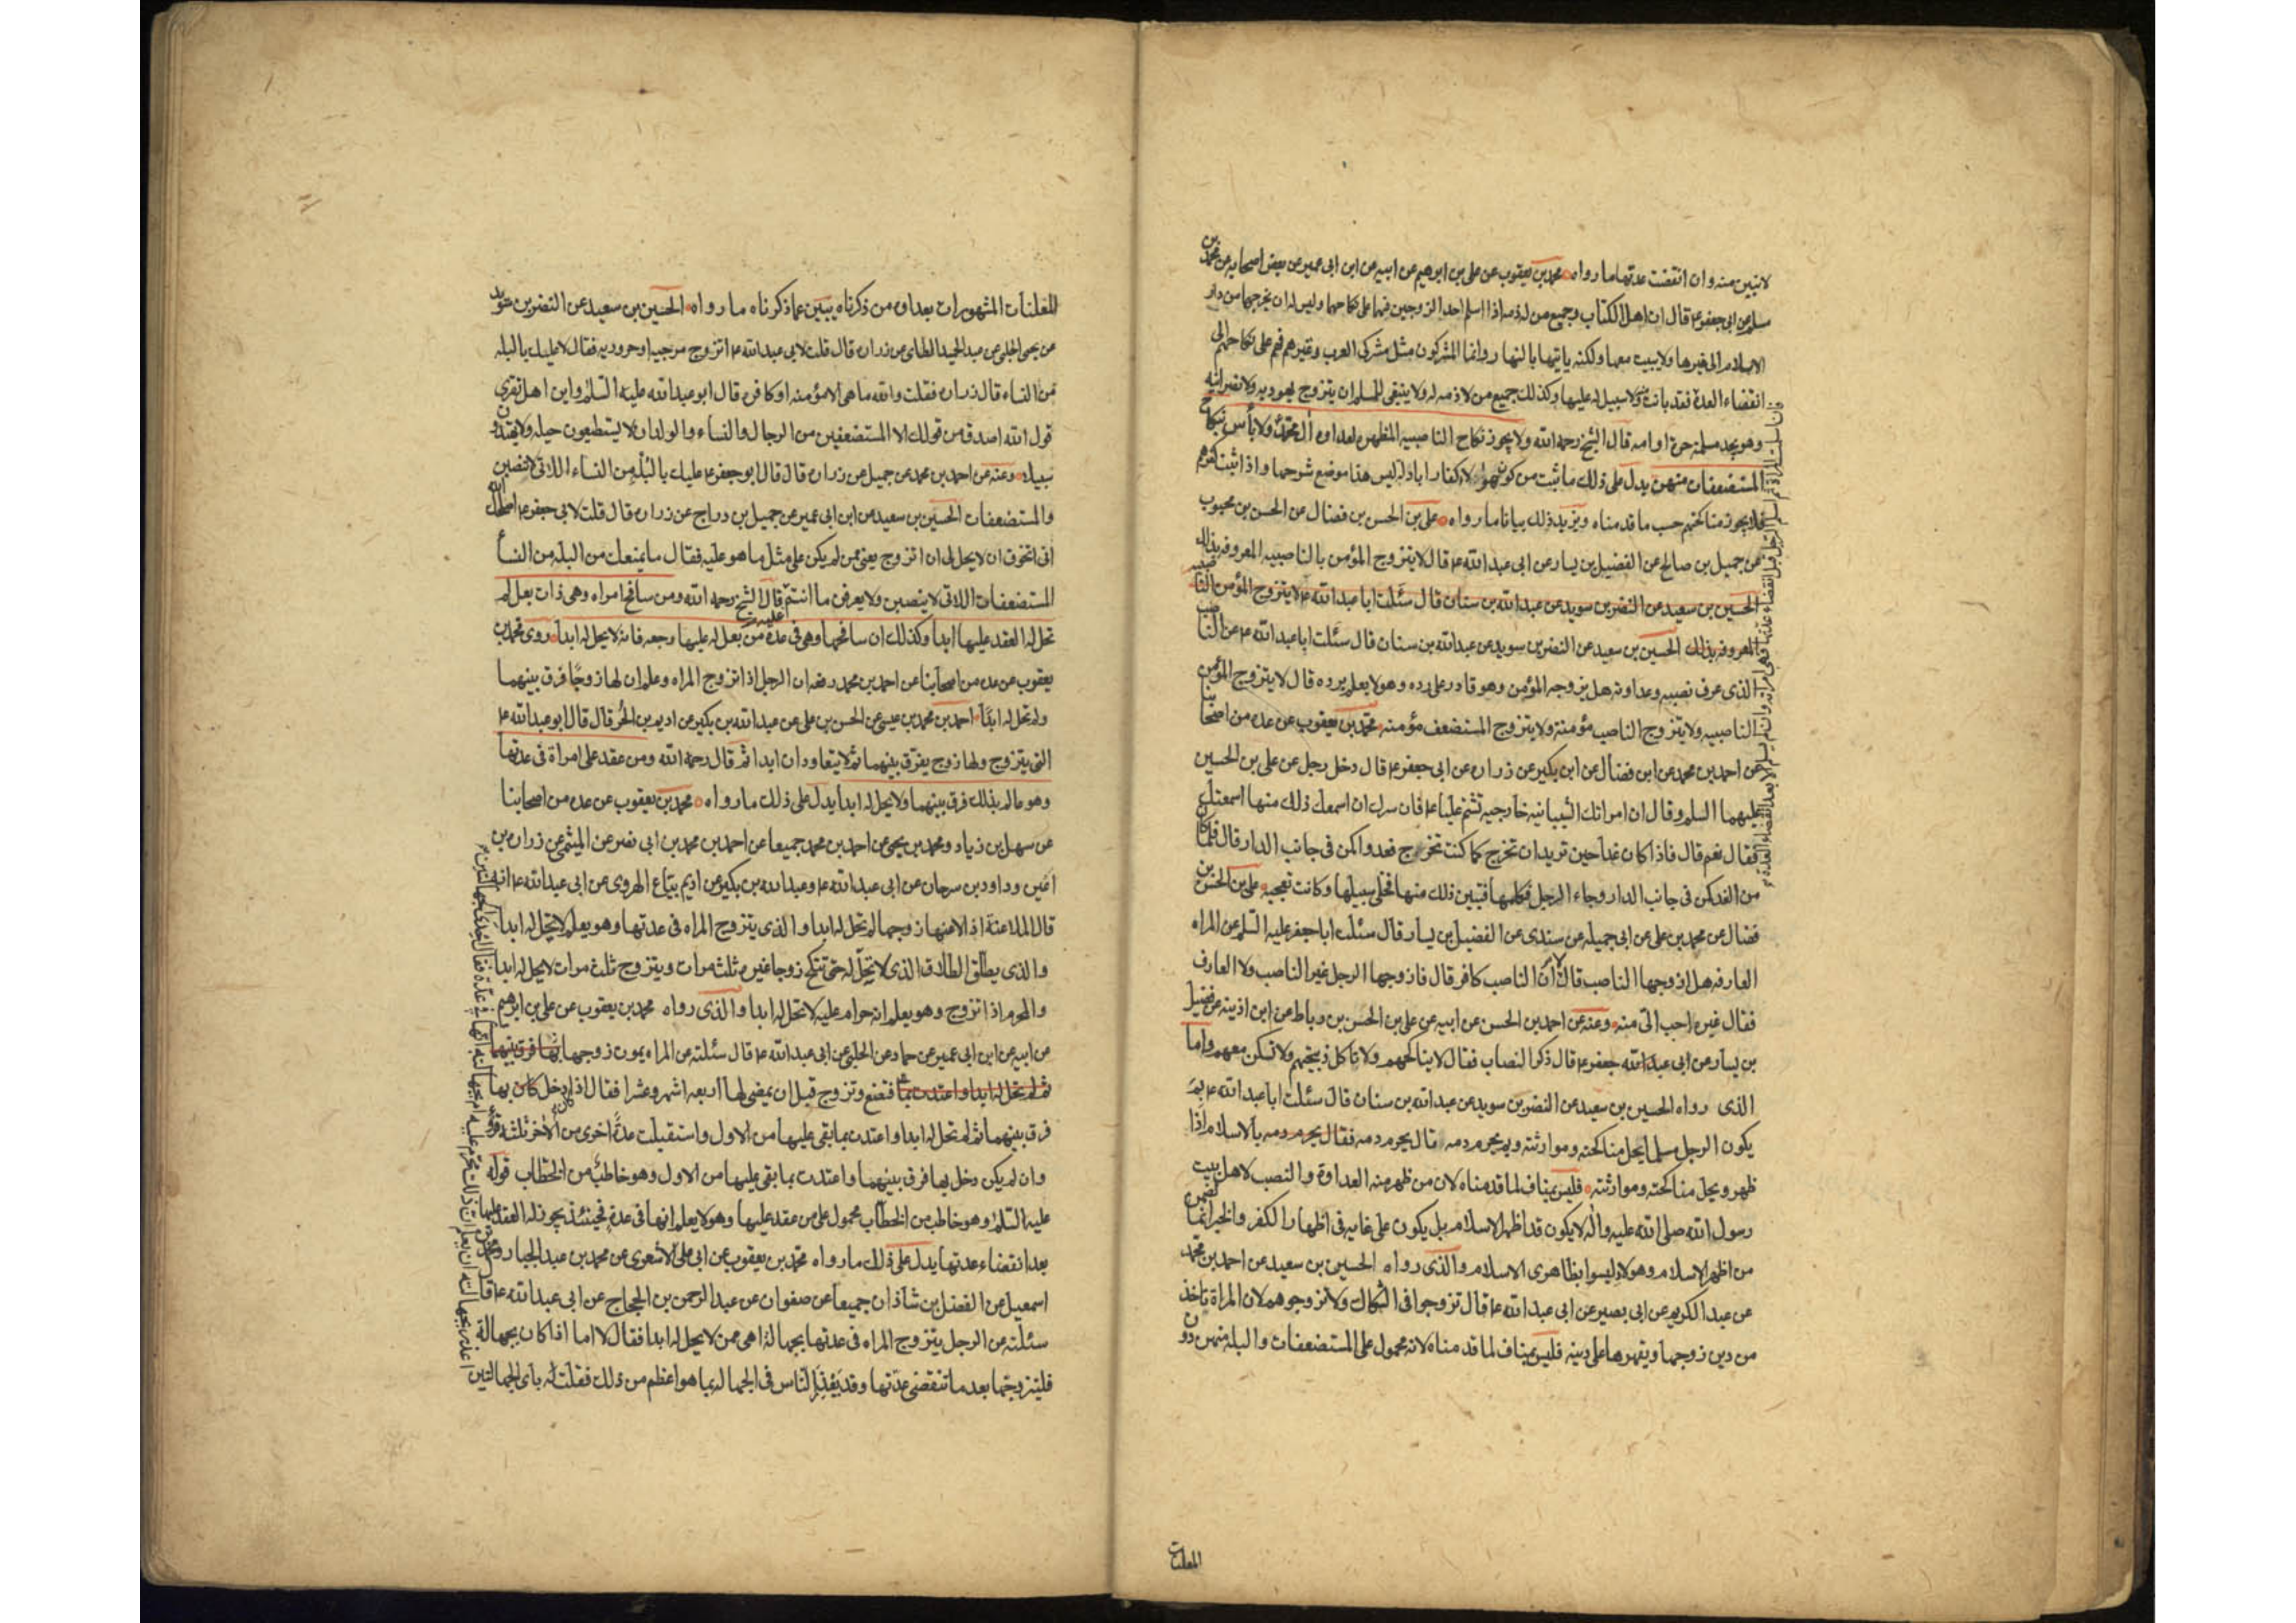 لا تبين منه وان انقضت عدتها ما رواه محمد بن يعقوب عن علي بن ابرهيم عن ابيه عن ابن ابى عمير عن بعض اصحابه عن محمد بن
مسلم عن ابى جعفر ع قال ان اهل الكتاب وجميع من له ذمه اذا اسلم احد الزوجين فهما على نكاحهما وليس له ان يخرجها من دار
الاسلام الى غيرها ولا يبيت معها ولكنه ياتيها بالنهار وانما المشركون مثل مشركى العرب وغيرهم فهم على نكاحهم الى
انقضاء العدة فقد بانت ولا سبيل له عليها وكذلك جميع من لا ذمه له ولا ينبغى للمسلم ان يتزوج يهوديه ولا نصرانيه
وهو يجد مسلمة حرة او امه قال الشيخ رحمه الله ولا يجوز نكاح الناصبيه المظهره لعداوه آل محمد ولا بأس بنكاح
المستضعفات منهن يدل على ذلك ما ثبت من كون هولاء كفارا بادله ليس هنا موضع شرحها واذا ثبت كفرهم
فلا يجوز مناكحتهم حسب ما قدمناه ويزيد ذلك بيانا ما رواه علي بن الحسن بن فضال عن الحسن بن محبوب
عن جميل بن صالح عن الفضيل بن يسار عن ابى عبد الله ع قال لا يتزوج المؤمن بالناصبيه المعروفه بذلك
الحسين بن سعيد عن النضر بن سويد عن عبد الله بن سنان قال سئلت ابا عبد الله ع لا يتزوج المؤمن الناصبيه
المعروفه بذلك الحسين بن سعيد عن النضر بن سويد عن عبد الله بن سنان قال سئلت ابا عبد الله ع عن الناصب
الذى عرف نصبه وعداوته هل يزوجه المؤمن وهو قادر على رده وهو لا يعلم برده قال لا يتزوج المؤمن
الناصبيه ولا يتزوج الناصب مؤمنة ولا يتزوج المستضعف مؤمنه محمد بن يعقوب عن عده من اصحابنا
عن احمد بن محمد عن ابن فضال عن ابن بكير عن زراره عن ابى جعفر ع قال دخل رجل عن على بن الحسين
عليهما السلم وقال ان امراتك الشيبانيه خارجيه تشتم عليا ع فان سرك ان اسمعك ذلك منها اسمعتك
فقال نعم قال فاذا كان غدا حين تريدان تخرج كما كنت تخرج فعد واكمن فى جانب الدار قال فلما كان
من الغد كمن فى جانب الدار وجاء الرجل فكلمها فتبين ذلك منها فخلى سبيلها وكانت تعجبه على بن الحسن بن
فضال عن محمد بن على عن ابى جميله عن سندى عن الفضيل بن يسار قال سئلت ابا جعفر عليه السلم عن المراه
العارفه هل ازوجها الناصب قال لا لأن الناصب كافر قال فازوجها الرجل غير الناصب ولا العارف
فقال غيره احب الىّ منه وعنه عن احمد بن الحسن عن ابيه عن على بن الحسن بن رباط عن ابن اذينه عن فضيل
بن يسار عن ابى عبد الله جعفر ع قال ذكر النصاب فقال لا يناكحهم ولا تاكل ذبيحتهم ولا تسكن معهم واما
الذى رواه الحسين بن سعيد عن النضر بن سويد عن عبد الله بن سنان قال سئلت ابا عبد الله ع بم
يكون الرجل مسلما يحل مناكحته وموارثته وبم يحرم دمه قال يحرم دمه فقال يحرم دمه بالاسلام اذا
ظهر ويحل مناكحته وموارثته فليس بمناف لما قدمناه لان من ظهر منه العداوة والنصب لاهل بيت
رسول الله صلى الله عليه واله لا يكون قد اظهر الاسلام بل يكون على غايه فى اظهار الكفر والخبر انما تضمن
من اظهر الاسلام وهولاء ليسوا بظاهرى الاسلام والذى رواه الحسين بن سعيد عن احمد بن محمد
عن عبد الكريم عن ابى بصير عن ابى عبد الله ع قال تزوجوا فى الشكاك ولا تزوجوهم لان المراة تاخذ
من دين زوجها ويقهرها على دينه فليس بمناف لما قدمناه لانه محمول على المستضعفات والبله منهن دون
المعلنات
وان اسلمت المراة ثم اسلم الرجل قبل انقضاء عدتها فهى امراته وان لم يسلم الا بعد انقضاء العدة
المعلنات المشهورات بعداوه من ذكرناه يبين عما ذكرناه ما رواه الحسين بن سعيد عن النضر بن سويد
عن يحيى الحلبى عن عبد الحميد الطائى عن زراره قال قلت لابى عبد الله ع اتزوج مرجيه او حروريه فقال لا عليك بالبله
من النساء قال زراره فقلت والله ما هى الا مؤمنه او كافره قال ابو عبد الله عليه السلم واين اهل تقوى
قول الله اصدق من قولك الا المستضعفين من الرجال والنساء والولدان لا يستطيعون حيله ولا يهتدون
سبيلا وعنه عن احمد بن محمد عن جميل عن زراره قال قال ابو جعفر ع عليك بالبله من النساء اللاتى لا تنصبن
والمستضعفات الحسين بن سعيد عن ابن ابى عمير عن جميل بن دراج عن زراره قال قلت لابى جعفر ع اصلحك الله
انى اتخوف ان لا يحل لى ان اتزوج يعنى ممن لم يكن على مثل ما هو عليه فقال ما يمنعك من البله من النسا
المستضعفات اللاتى لا ينصبن ولا يعرفن ما انتم قال الشيخ رحمه الله ومن سافح امراه وهى ذات بعل لم
تحل له العقد عليها ابدا وكذلك ان سافحها وهى فى عدة من بعل له عليها رجعه فانه لا يحل له ابدا روى محمد بن
يعقوب عن عده من اصحابنا عن احمد بن محمد رفعه ان الرجل اذا تزوج المراه وعلم ان لها زوجًا فرق بينهما
ولم تحل له ابدًا احمد بن محمد بن عيسى عن الحسن بن على عن عبد الله بن بكير عن اديم بن الحر قال قال ابو عبد الله ع
التى يتزوج ولها زوج يفرق بينهما ثم لا يتعاودان ابدا ثم قال رحمه الله ومن عقد على امراة فى عدتها
وهو عالم بذلك فرق بينهما ولا يحل له ابدا يدل على ذلك ما رواه محمد بن يعقوب عن عده من اصحابنا
عن سهل بن زياد ومحمد بن يحيى عن احمد بن محمد جميعا عن احمد بن محمد بن ابى نصر عن المثنى عن زراره بن
اعين وداود بن سرحان عن ابى عبد الله ع وعبد الله بن بكير عن اديم بياع الهروى عن ابى عبد الله ع انه
قال الملاعنة اذا لاعنها زوجها لم تحل له ابدا والذى يتزوج المراه فى عدتها وهو يعلم لا تحل له ابدا
والذى يطلق الطلاق الذى لا تحل له حتى تنكح زوجا غيره ثلث مرات ويتزوج ثلث مرات لا يحل له ابدا
والمحرم اذا تزوج وهو يعلم انه حرام عليه لا تحل له ابدا والذى رواه محمد بن يعقوب عن على بن ابرهيم
عن ابيه عن ابن ابى عمير عن حماد عن الحلبى عن ابى عبد الله ع قال سئلته عن المراه يموت زوجها بها فرق بينهما
ثم لم تحل له ابدا واعتدت بما فتضع وتزوج قبل ان يمضى لها اربعه اشهر وعشرا فقال اذا دخل كان بها
فرق بينهما ثم لم تحل له ابدا واعتدت بما بقى عليها من الاول واستقبلت عدة اخرى من الاخر ثلثه قروء
وان لم يكن دخل بها فرق بينهما واعتدت بما بقى عليها من الاول وهو خاطب من الخطاب قوله
عليه السلم وهو خاطب من الخطاب محمول على من عقد عليها وهو لا يعلم انها فى عدة فحينئذ يجوز له العقد عليها
بعد انقضاء عدتها يدل على ذلك ما رواه محمد بن يعقوب عن ابى على الاشعرى عن محمد بن عبد الجبار ومحمد بن
اسمعيل عن الفضل بن شاذان جميعا عن صفوان عن عبد الرحمن بن الحجاج عن ابى عبد الله ع قال
سئلته عن الرجل يتزوج المراه فى عدتها بجهالة اهى ممن لا يحل له ابدا فقال لا اما اذا كان بجهالة
فليتزوجها بعد ما تنقضى عدتها وقد يعذر الناس فى الجهاله بما هو اعظم من ذلك فقلت له باى الجهالتين